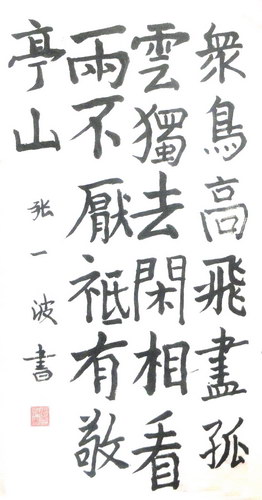 衆鳥高飛盡孤
雲獨去閑相看
兩不厭祗有敬
亭山
张一波書